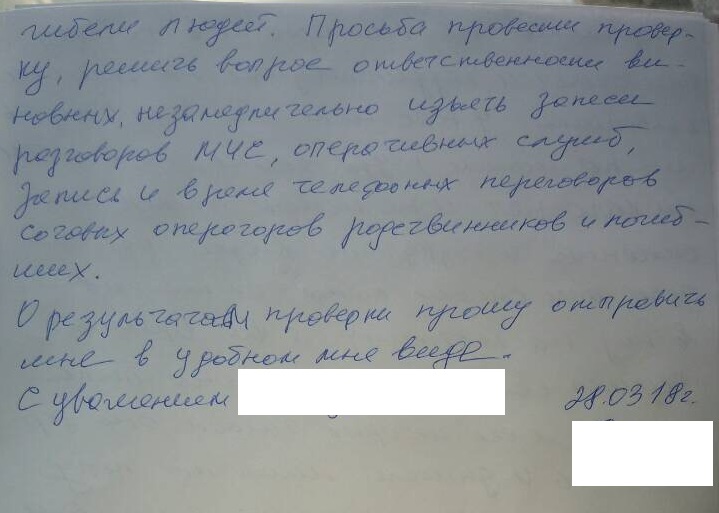 гибели людей. Просьба провести провер-
ку, решить вопрос ответственности ви-
новных, незамедлительно изъять записи
разговоров МЧС, оперативных служб,
запись и время телефонных переговоров
сотовых операторов родственников и погиб-
ших.
О результатах проверки прошу отправить
мне в удобном мне виде.
С уважением
28.03.18г.